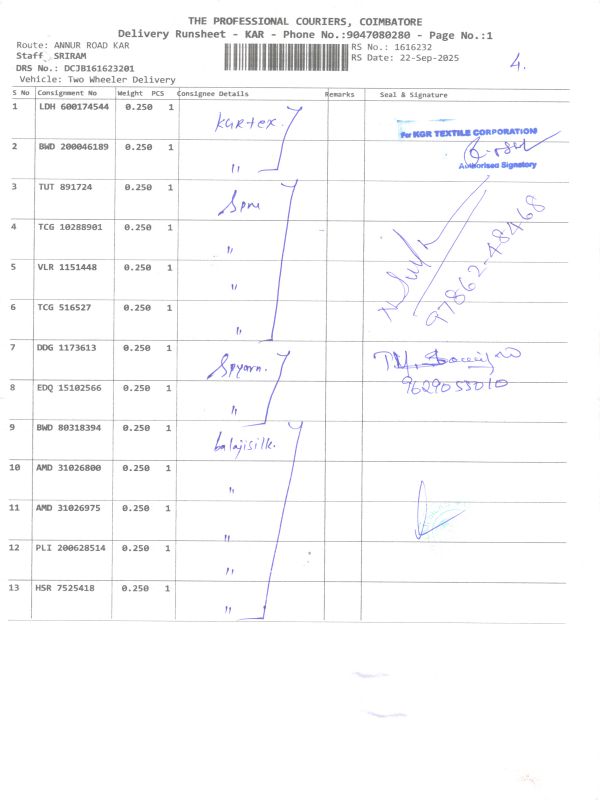 THE PROFESSIONAL COURIERS, COIMBATORE
Delivery Runsheet - KAR - Phone No.:9047080280 - Page No.:1
Route: ANNUR ROAD KAR RS No.: 1616232
Staff SRIRAM RS Date: 22-Sep-2025 4.
DRS No.: DCJB161623201
Vehicle: Two Wheeler Delivery
S No Consignment No Weight PCS Consignee Details Remarks Seal & Signature
1 LDH 600174544 0.250 1 KGRtex.
For KGR TEXTILE CORPORATION
2 BWD 200046189 0.250 1 "
Authorised Signatory
3 TUT 891724 0.250 1
4 TCG 10288901 0.250 1 "
97862-48468
5 VLR 1151448 0.250 1 "
6 TCG 516527 0.250 1 "
7 DDG 1173613 0.250 1 Spyarn.
8 EDQ 15102566 0.250 1 " 9629055010
9 BWD 80318394 0.250 1 balajisilk.
10 AMD 31026800 0.250 1 "
11 AMD 31026975 0.250 1 "
12 PLI 200628514 0.250 1 "
13 HSR 7525418 0.250 1 "